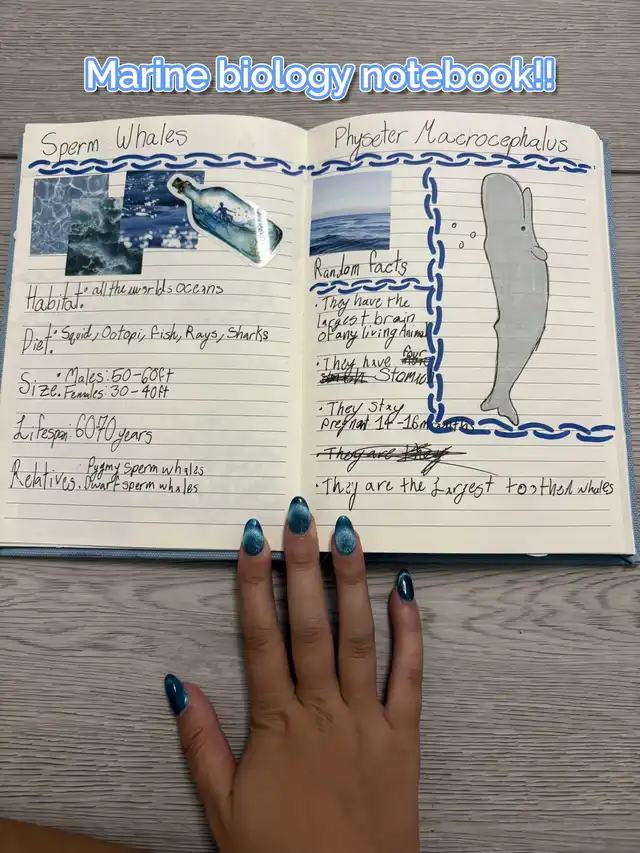 Marine biology notebook!!
Sperm Whales
Habitat. • all the worlds oceans
Diet. • Squid, Ootopi, Fish, Rays, Sharks
Size. • Males: 50-60ft
Females: 30-40ft
Lifespan: 60 70 years
Relatives. • Pygmy sperm whales
Dwarf sperm whales
Physeter Macrocephalus
Random facts
• They have the
largest brain
of any living Animal
• They have four
Stomu
• They stay
pregnat 14-16 months
• They are they
• They are the Largest toothed whales